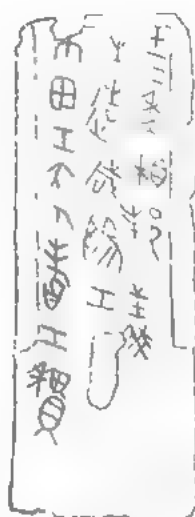 十三年相邦義
之造咸陽工
師田工大人耆工穨